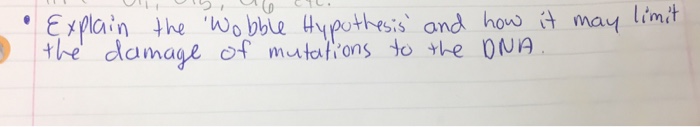 • Explain the 'Wobble Hypothesis' and how it may limit
the damage of mutations to the DNA.